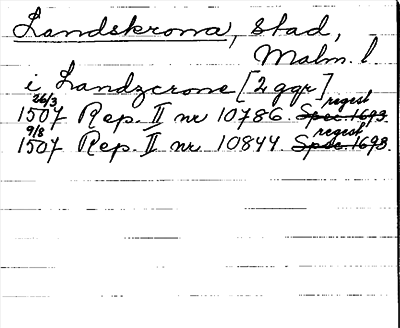 Landskrona, stad,
Malm. l
i Landzcrone [2 ggr]
26/3 1507 Rep. II nr 10786. Spec. 1693. regest
9/8 1507 Rep. II nr 10844. Spec. 1693. regest